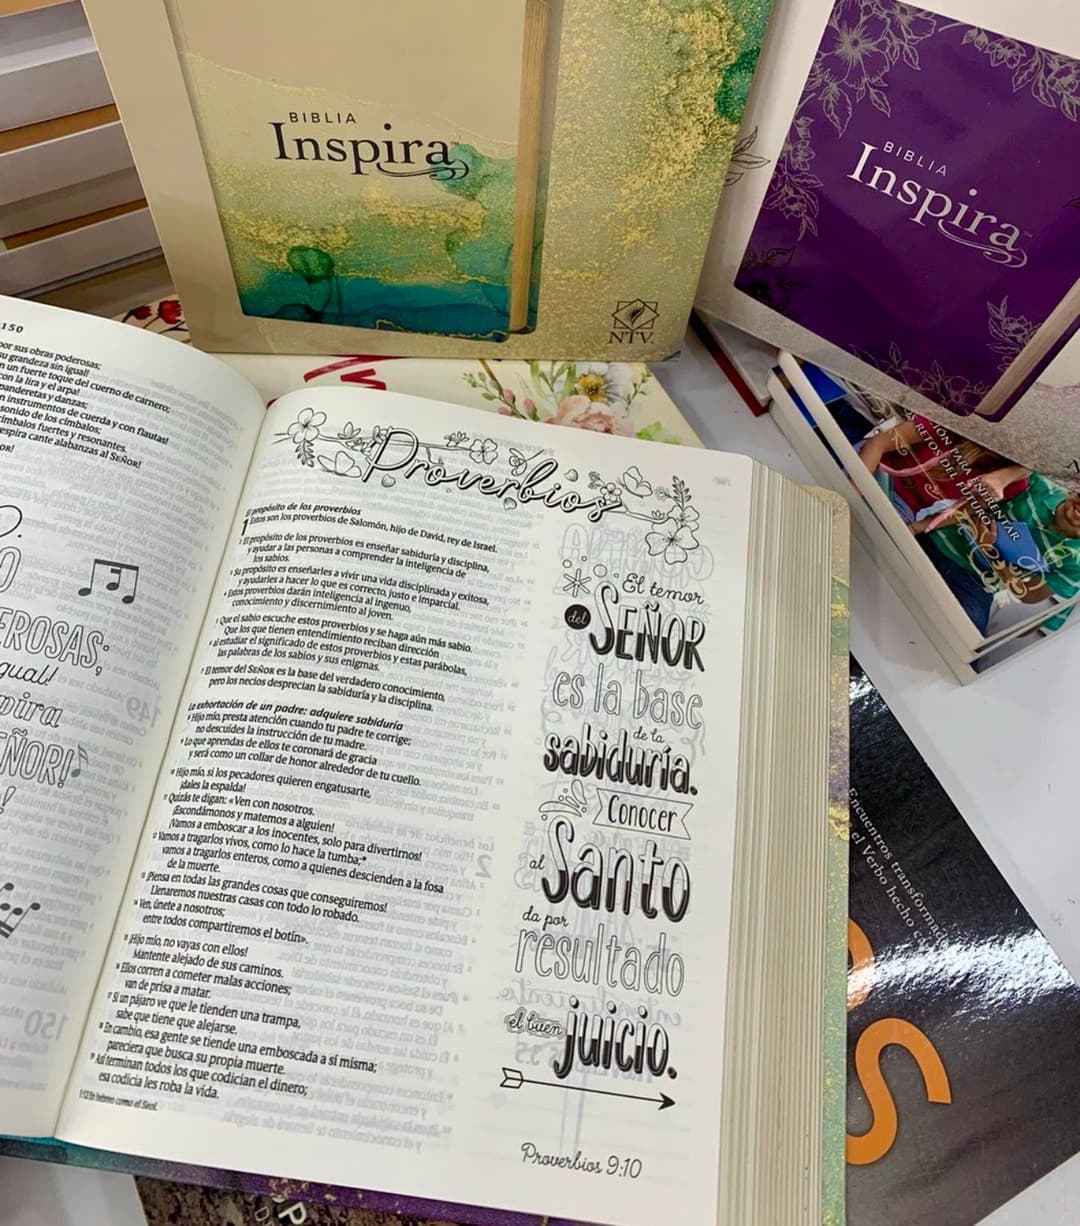 BIBLIA
Inspira
NTV
BIBLIA
Inspira
150
por sus obras poderosas;
su grandeza sin igual!
n un fuerte toque del cuerno de carnero;
con la lira y el arpa!
panderetas y danzas;
n instrumentos de cuerda y con flautas!
sonido de los címbalos;
címbalos fuertes y resonantes.
espira cante alabanzas al SEÑOR!
EROSAS;
gual!
pira
EÑOR!
Proverbios
El propósito de los proverbios
1 Estos son los proverbios de Salomón, hijo de David, rey de Israel.
2 El propósito de los proverbios es enseñar sabiduría y disciplina,
y ayudar a las personas a comprender la inteligencia de
los sabios.
3 Su propósito es enseñarles a vivir una vida disciplinada y exitosa,
y ayudarles a hacer lo que es correcto, justo e imparcial.
4 Estos proverbios darán inteligencia al ingenuo,
conocimiento y discernimiento al joven.
5 Que el sabio escuche estos proverbios y se haga aún más sabio.
Que los que tienen entendimiento reciban dirección
6 al estudiar el significado de estos proverbios y estas parábolas,
las palabras de los sabios y sus enigmas.
7 El temor del SEÑOR es la base del verdadero conocimiento,
pero los necios desprecian la sabiduría y la disciplina.
La exhortación de un padre: adquiere sabiduría
8 Hijo mío, presta atención cuando tu padre te corrige;
no descuides la instrucción de tu madre.
9 Lo que aprendas de ellos te coronará de gracia
y será como un collar de honor alrededor de tu cuello.
10 Hijo mío, si los pecadores quieren engatusarte,
¡dales la espalda!
11 Quizás te digan: «Ven con nosotros.
¡Escondámonos y matemos a alguien!
¡Vamos a emboscar a los inocentes, solo para divertirnos!
12 Vamos a tragarlos vivos, como lo hace la tumba;*
vamos a tragarlos enteros, como a quienes descienden a la fosa
de la muerte.
13 ¡Piensa en todas las grandes cosas que conseguiremos!
Llenaremos nuestras casas con todo lo robado.
14 Ven, únete a nosotros;
entre todos compartiremos el botín».
15 ¡Hijo mío, no vayas con ellos!
Mantente alejado de sus caminos.
16 Ellos corren a cometer malas acciones;
van de prisa a matar.
17 Si un pájaro ve que le tienden una trampa,
sabe que tiene que alejarse.
18 En cambio, esa gente se tiende una emboscada a sí misma;
pareciera que busca su propia muerte.
19 Así terminan todos los que codician el dinero;
esa codicia les roba la vida.
1:12 En hebreo como el Seol.
El temor
del SEÑOR
es la base
de la
sabiduría.
Conocer
al Santo
da por
resultado
el buen juicio.
Proverbios 9:10
PARA ENFRENTAR
RETOS DEL FUTURO
Encuentros
el Verbo hecho
OS